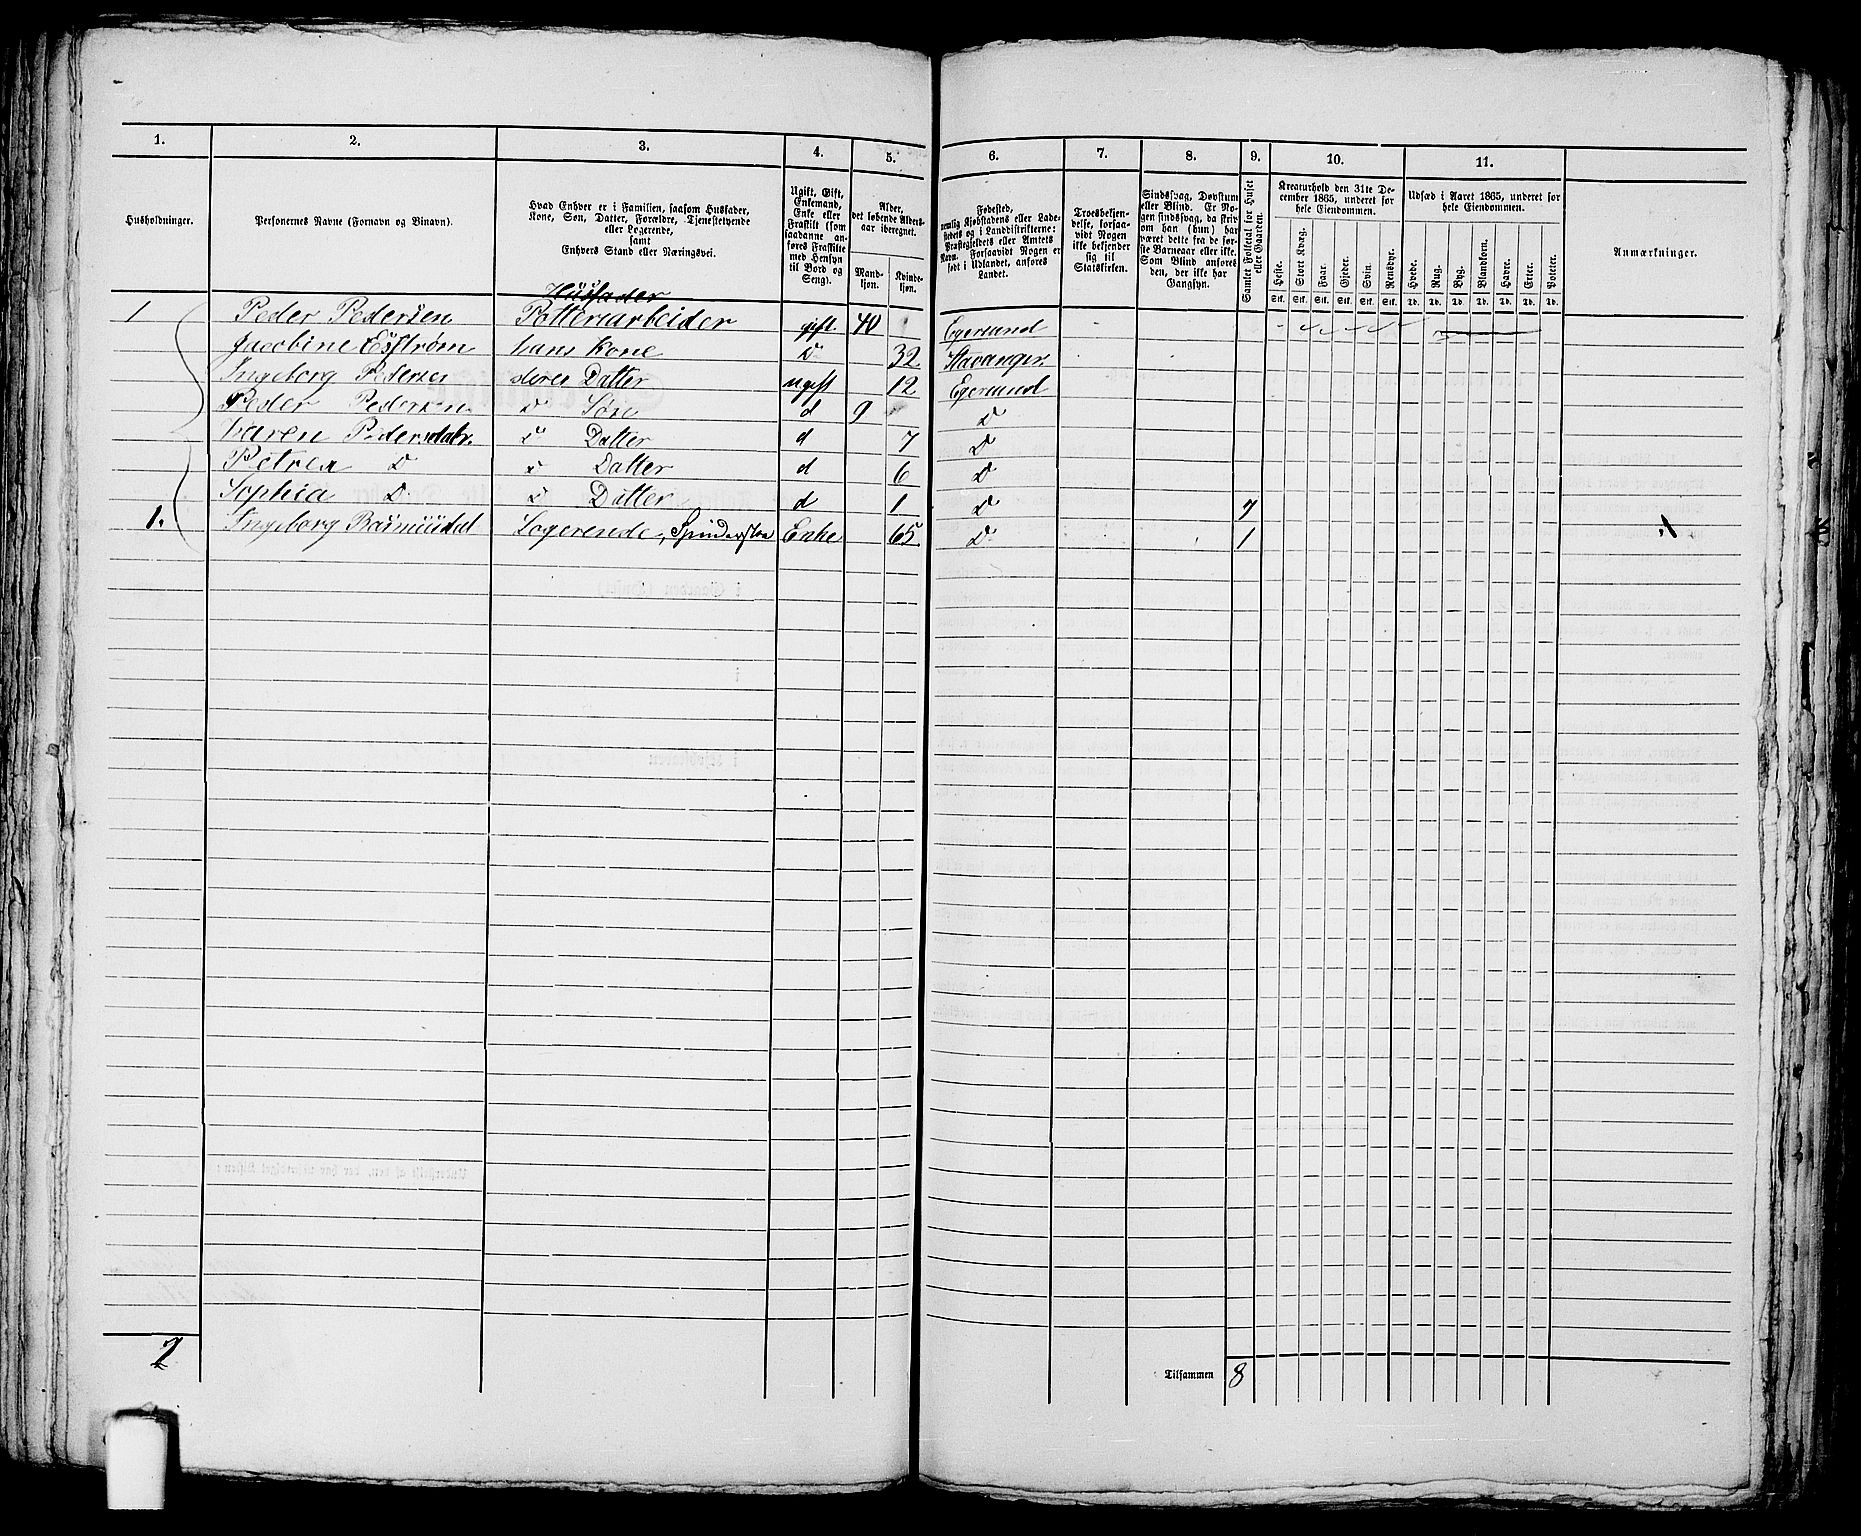 1. 2. 3. 4. 5. 6. 7. 8. 9. 10. 11.
Husholdninger.
Personernes Navne (Fornavn og Binavn).
Hvad Enhver er i Familien, saasom Husfader,
Kone, Søn, Datter, Forældre, Tjenestetyende
eller Logerende,
samt
Enhvers Stand eller Næringsvei.
Ugift, Gift,
Enkemand,
Enke eller
Fraskilt (som
saadanne an-
føres Fraskilte
med Hensyn
til Bord og
Seng).
Alder,
det løbende Alders-
aar iberegnet.
Mand-
kjøn.
Kvinde-
kjøn.
Fødested,
nemlig Kjøbstadens eller Lade-
stedets og i Landdistrikterne:
Præstegjeldets eller Amtets
Navn. Forsaavidt Nogen er
født i Udlandet, anføres
Landet.
Troesbekjen-
delse, forsaa-
vidt Nogen
ikke bekjender
sig til
Statskirken.
Sindssvag, Døvstum
eller Blind. Er No-
gen sindssvag, da skriv
om han (hun) har
været dette fra de før-
ste Barneaar eller ikke.
Som Blind anføres
den, der ikke har
Gangsyn.
Samlet Folketal for Huset
eller Gaarden.
Kreaturhold den 31te De-
cember 1865, underet for
hele Eiendommen.
Heste. Stort Kvæg. Faar. Gjeder. Svin. Rensdyr.
Stk. Stk. Stk. Stk. Stk. Stk.
Udsæd i Aaret 1865, underet for
hele Eiendommen.
Hvede. Rug. Byg. Blandkorn. Havre. Erter. Poteter.
Td. Td. Td. Td. Td. Td. Td.
Anmærkninger.
Husfader
1 Peder Pedersen Potteriarbeider gift 40 Egersund
Jacobine Esstrøm hans Kone D 32 Stavanger.
Ingeborg Pedersen deres Datter ugift 12 Egersund
Peder Pedersen D Søn d 9 D
Karen Pedersdatr. D Datter d 7 D
Petrea D D Datter d 6 D
Sophia D D Datter d 1 D 7
1. Ingeborg Rasmusdat Logerende, Enke 65 D 1
2
Tilsammen 8